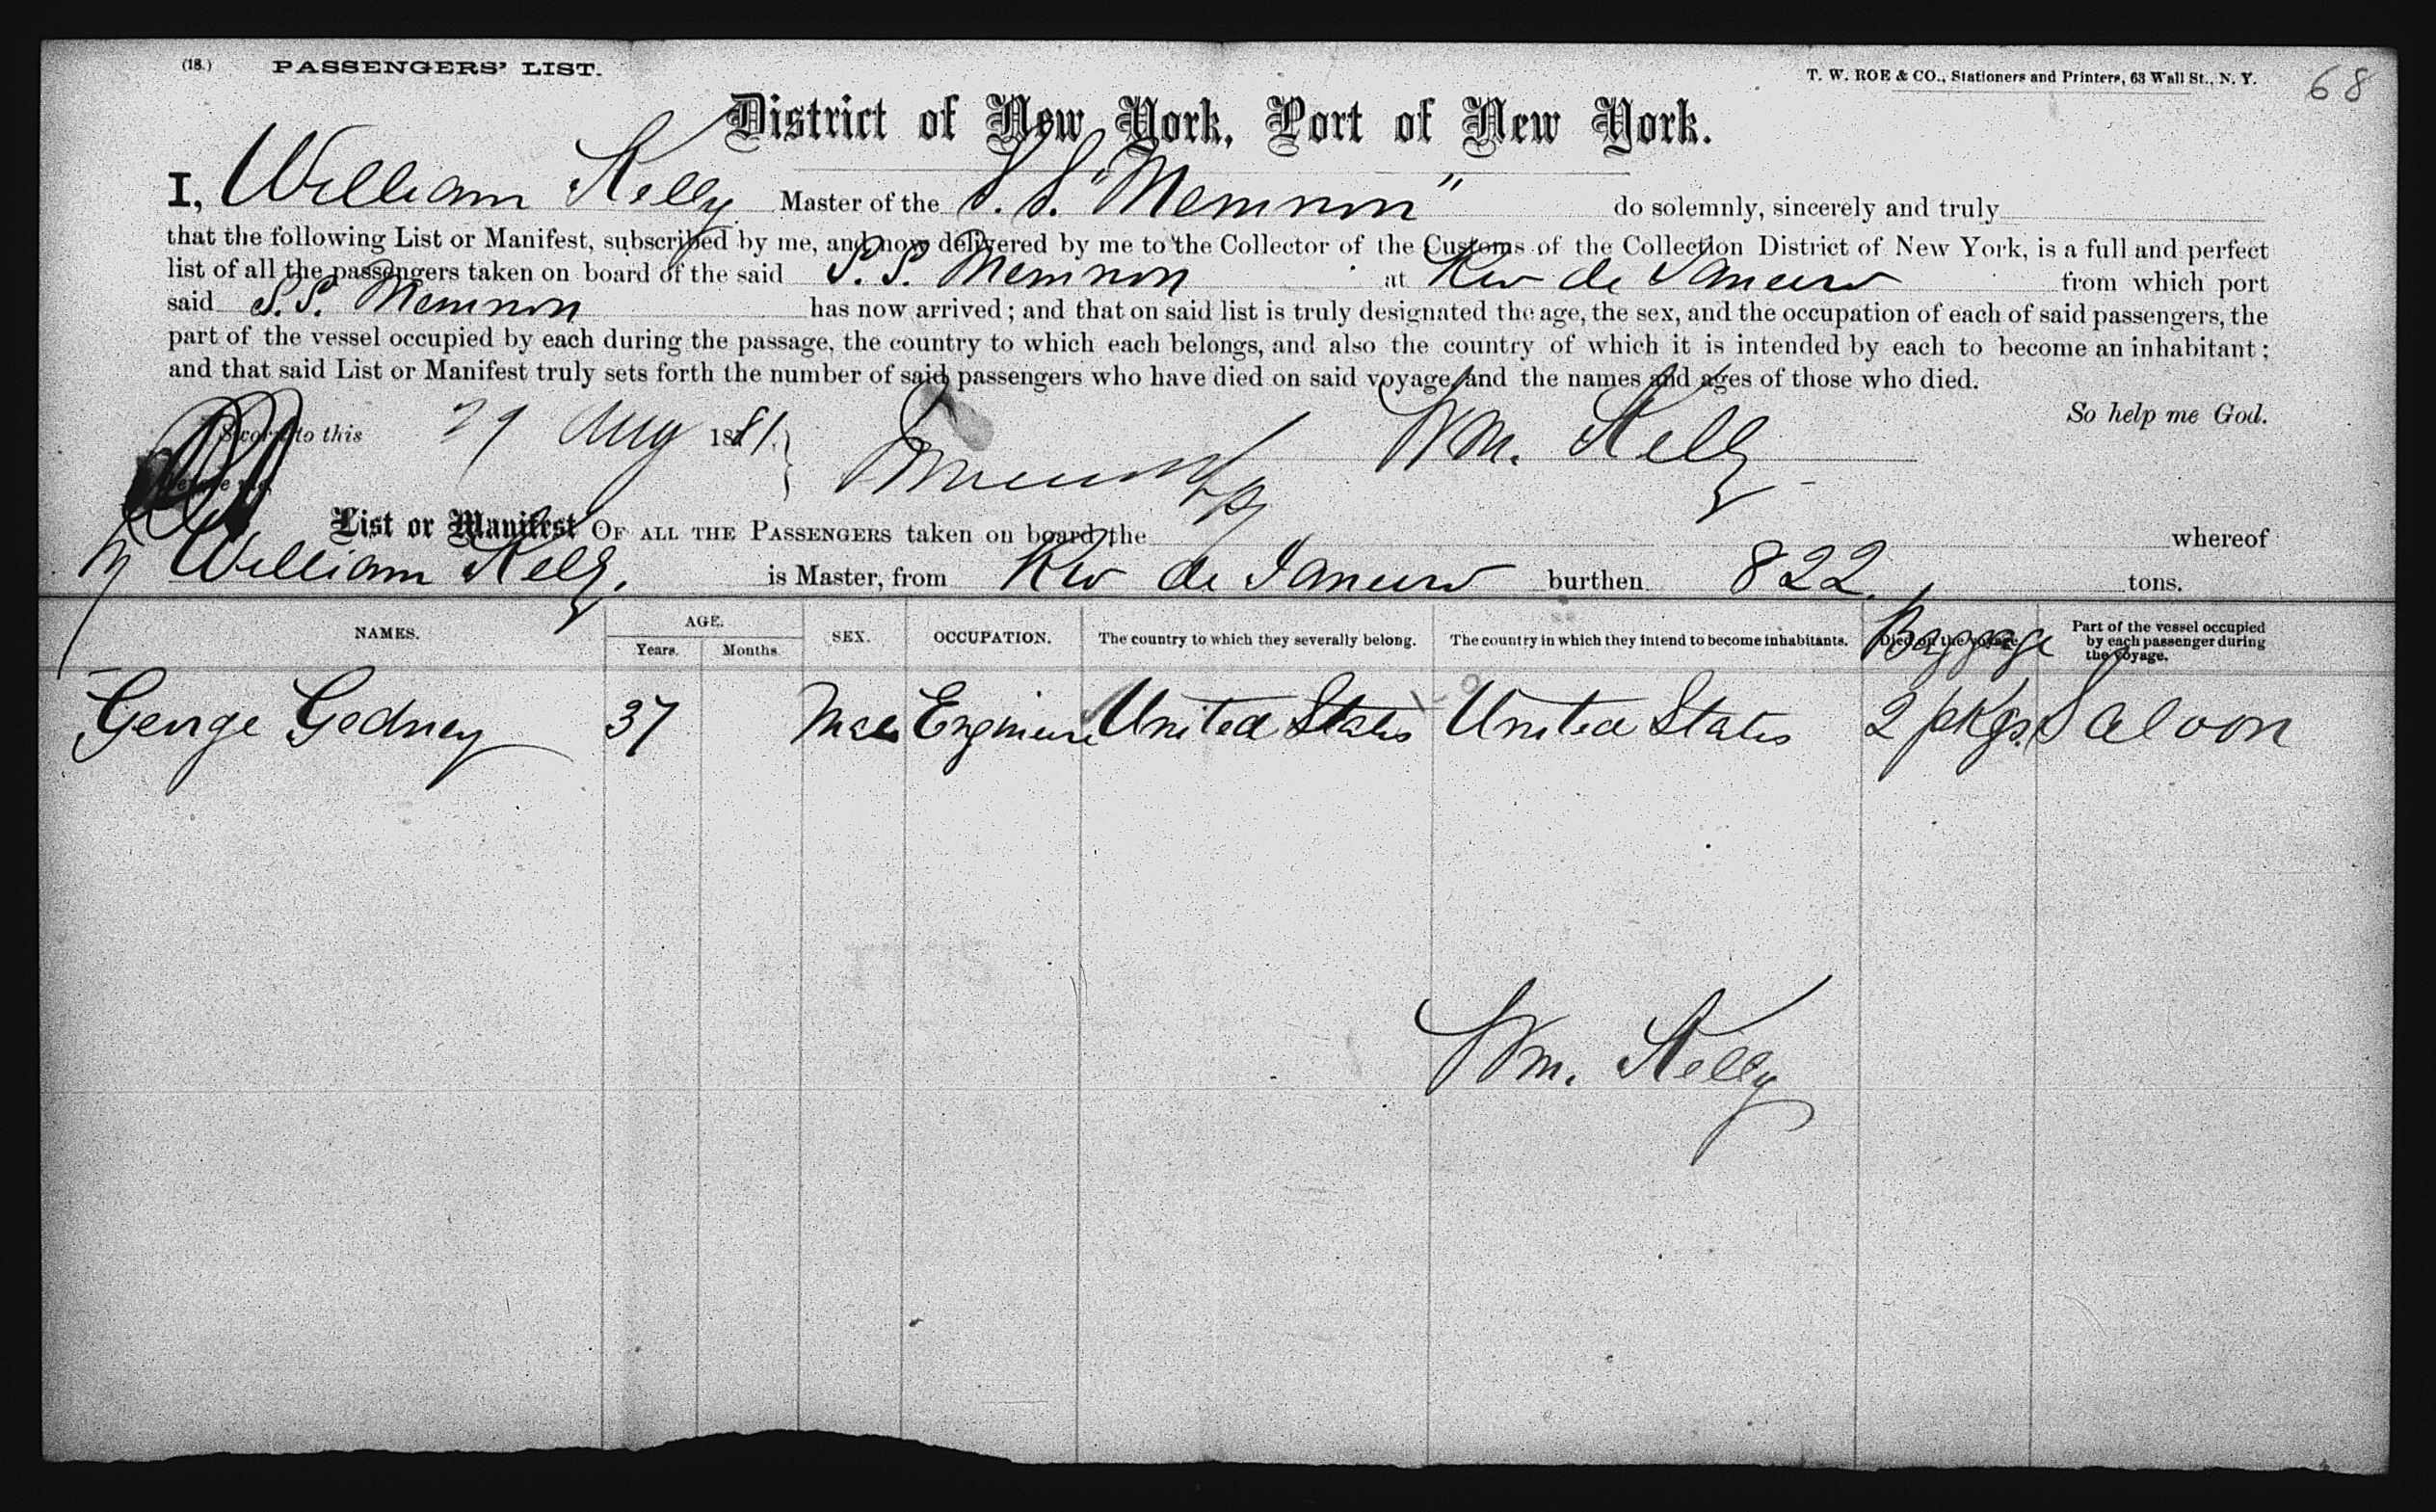 (18.) PASSENGERS' LIST. T. W. ROE & CO., Stationers and Printers, 63 Wall St., N. Y. 68
District of New York, Port of New York.
I, William Kelly Master of the S.S. "Memnon" do solemnly, sincerely and truly
that the following List or Manifest, subscribed by me, and now delivered by me to the Collector of the Customs of the Collection District of New York, is a full and perfect
list of all the passengers taken on board of the said S.S. Memnon at Rio de Janeiro from which port
said S.S. Memnon has now arrived; and that on said list is truly designated the age, the sex, and the occupation of each of said passengers, the
part of the vessel occupied by each during the passage, the country to which each belongs, and also the country of which it is intended by each to become an inhabitant;
and that said List or Manifest truly sets forth the number of said passengers who have died on said voyage, and the names and ages of those who died.
So help me God.
Sworn to this 29 Aug 1881. Wm. Kelly
before me,
List or Manifest OF ALL THE PASSENGERS taken on board the whereof
William Kelly. is Master, from Rio de Janeiro burthen 822 tons.
NAMES. AGE. Years. Months. SEX. OCCUPATION. The country to which they severally belong. The country in which they intend to become inhabitants. Died on the voyage. Baggage Part of the vessel occupied by each passenger during the voyage.
George Gedney 37 Male Engineer United States United States 2 pkgs. Saloon
Wm. Kelly